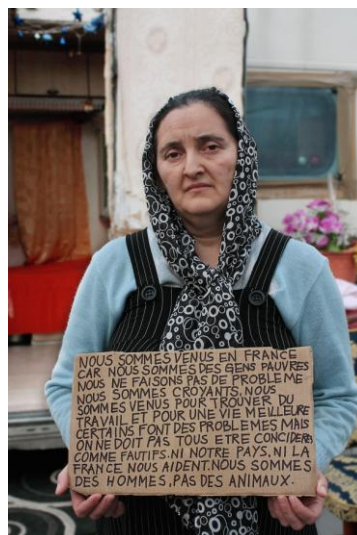 NOUS SOMMES VENUS EN FRANCE
CAR NOUS SOMMES DES GENS PAUVRES
NOUS NE FAISONS PAS DE PROBLEME
NOUS SOMMES CROYANTS. NOUS
SOMMES VENUS POUR TROUVER DU
TRAVAIL ET POUR UNE VIE MEILLEURE
CERTAILS FONT DES PROBLEMES MAIS
ON NE DOIT PAS TOUS ETRE CONCIDERES
COMME FAUTIFS. NI NOTRE PAYS, NI LA
FRANCE NOUS AIDENT. NOUS SOMMES
DES HOMMES, PAS DES ANIMAUX.